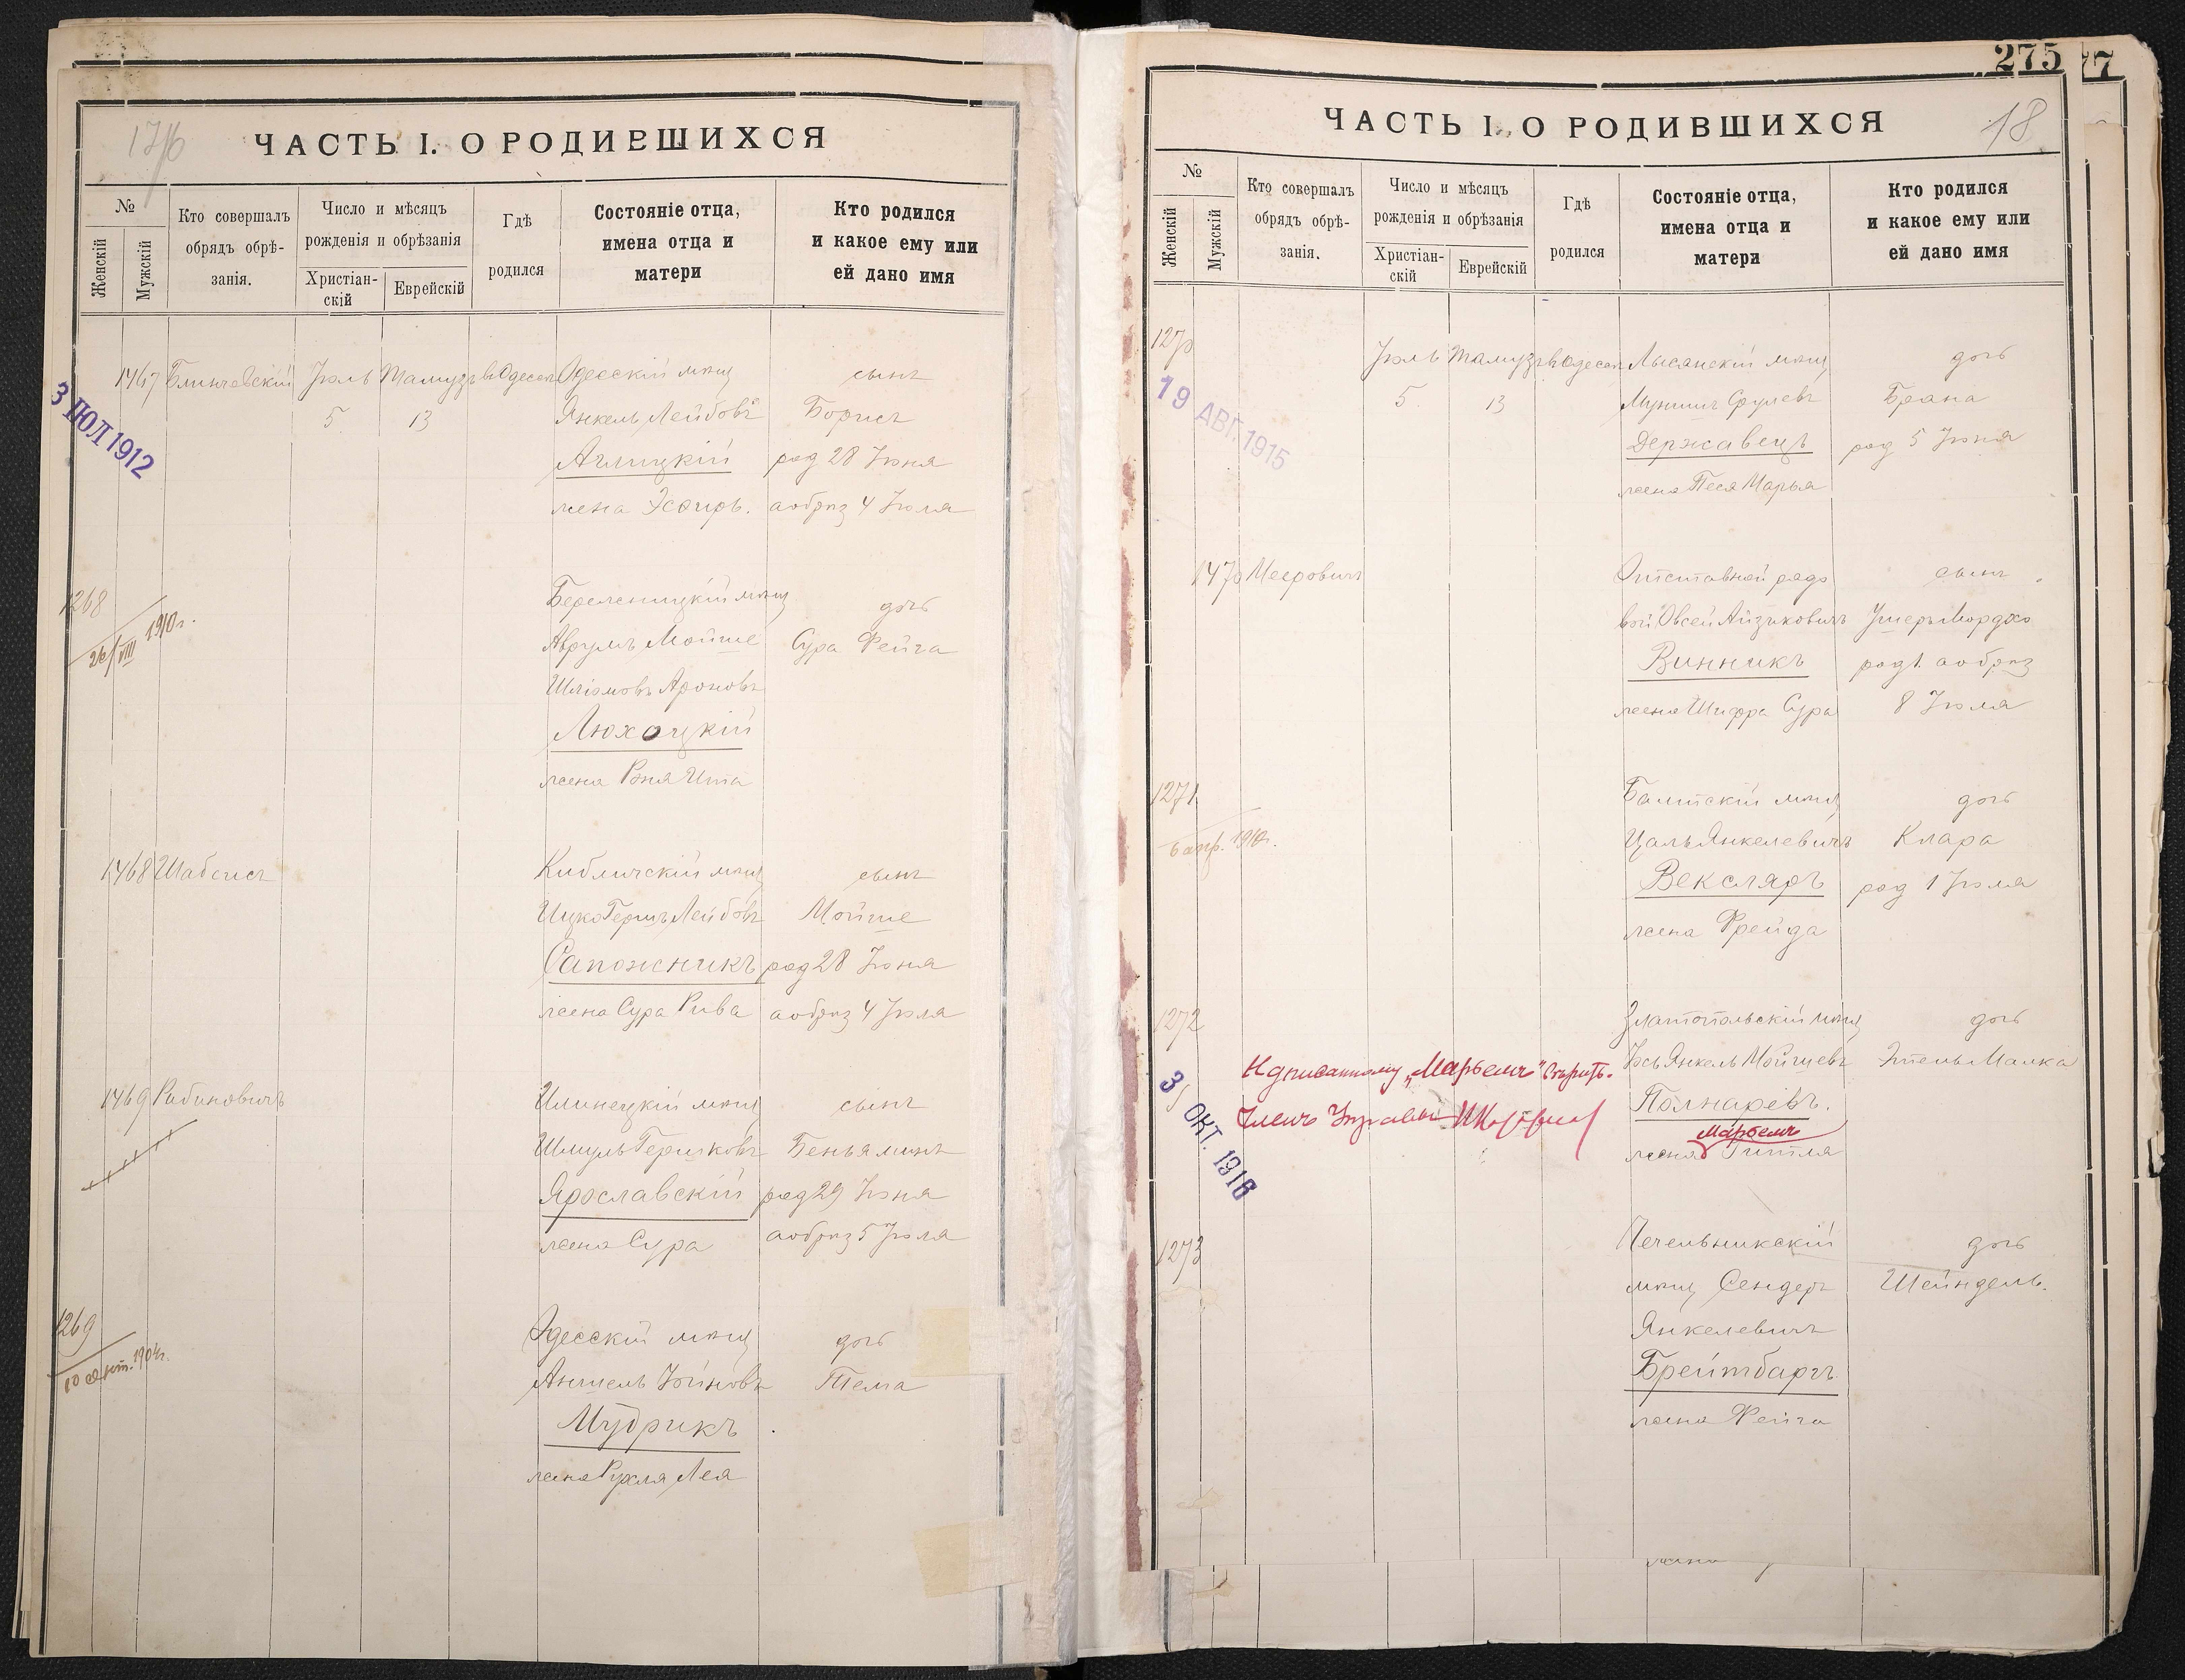 ЧАСТЬ I. О РОДИВШИХСЯ
№
Женскій
Мужскій
Кто совершалъ
обрядъ обрѣ-
занія.
Число и мѣсяцъ
рожденія и обрѣзанія
Христіан-
скій
Еврейскій
Гдѣ
родился
Состояніе отца,
имена отца и
матери
Кто родился
и какое ему или
ей дано имя
1467 Блинчевскій Іюль Тамузъ въ Одессѣ Одесскій мѣщ сынъ
3 ІЮЛ 1912
5 13 Янкель Лейбовъ Борисъ
Аглицкій род 28 Іюня
жена Эсѳирь. а обрѣз 4 Іюля
1268 мѣщ дочь
26/VIII 1910 г.
Аврумъ Мойше Сура Фейга
Шліомовъ Ароновъ
Люхоцкій
жена Рэня Ита
1468 Шабсисъ Кибличскій мѣщ сынъ
Ицко Гершъ Лейбовъ Мойше
Сапожникъ род 28 Іюня
жена Сура Рива а обрѣз 4 Іюля
1469 Рабиновичъ Илинецкій мѣщ сынъ
Шмуль Гершковъ Беньяминъ
Ярославскій род 29 Іюня
жена Сура а обрѣз 5 Іюля
1269 Одесскій мѣщ дочь
10 сент. 1904 г.
Аншель Тема
Мудрикъ
жена Рухля Лея
275
77
ЧАСТЬ I. О РОДИВШИХСЯ
18
№
Женскій
Мужскій
Кто совершалъ
обрядъ обрѣ-
занія.
Число и мѣсяцъ
рожденія и обрѣзанія
Христіан-
скій
Еврейскій
Гдѣ
родился
Состояніе отца,
имена отца и
матери
Кто родился
и какое ему или
ей дано имя
1270 Іюль Тамузъ въ Одессѣ Лысянскій мѣщ дочь
19 АВГ. 1915
5 13 Мунишъ Срулевъ Брана
Державецъ род 5 Іюня
жена Песя Марья
1470 Мееровичъ Отставной рядо сынъ
вой Овсей Айзиковичъ Ушеръ Мордко
Винникъ род 1. а обрѣз
жена Шифра Сура 8 Іюля
1271 Балтскій мѣщ дочь
6 апр. 1910 г.
Цаль Янкелевичъ Клара
Векслярѣ род 1 Іюля
жена Фрейда
1272 Златопольскій мѣщ дочь
Іось Янкель Мойшевъ Этель Малка
Надписанному „Марьемъ" вѣрить.
Полнаревъ.
Членъ Управы
Марьемъ
жена Гитля
3 ОКТ. 1916
1273 Печельникскій дочь
мѣщ Сендеръ Шейндель.
Янкелевичъ
Брейтбаргъ
жена Фейга